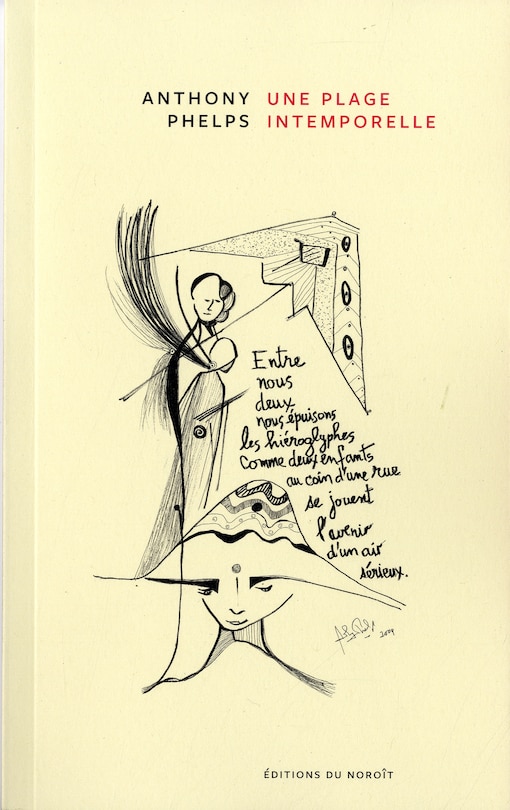 ANTHONY
PHELPS
UNE PLAGE
INTEMPORELLE
Entre
nous
deux
nous épuisons
les hiéroglyphes
Comme deux enfants
au coin d'une rue
se jouent
l'avenir
d'un air
sérieux.
ÉDITIONS DU NOROÎT